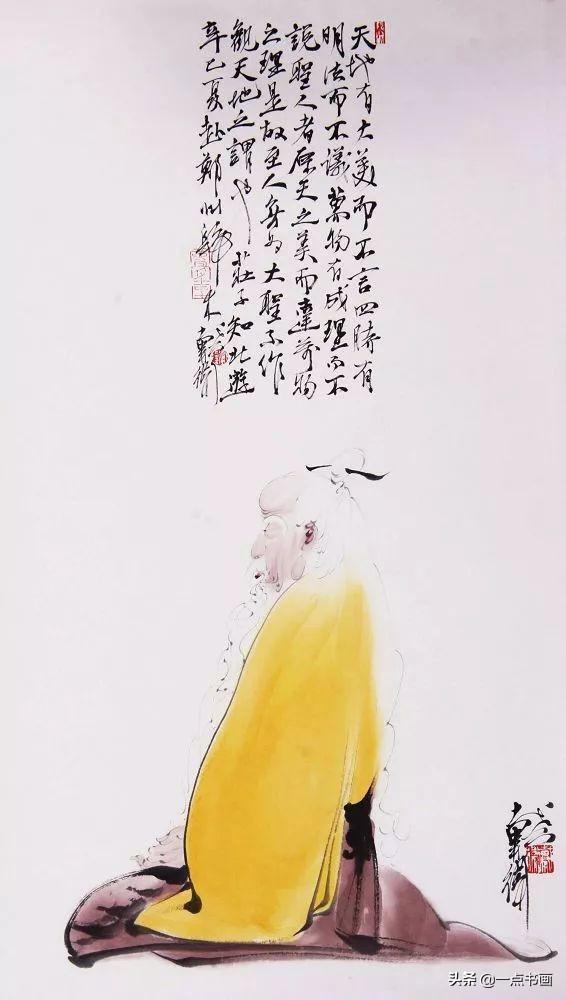 天地有大美而不言四時有
明法而不議萬物有成理而不
說聖人者原天之美而達萬物
之理是故至人無為大聖不作
觀天地之謂也 莊子知北遊
辛巳夏赴鄭州歸 戴衛
戴衛
头条 @一点书画